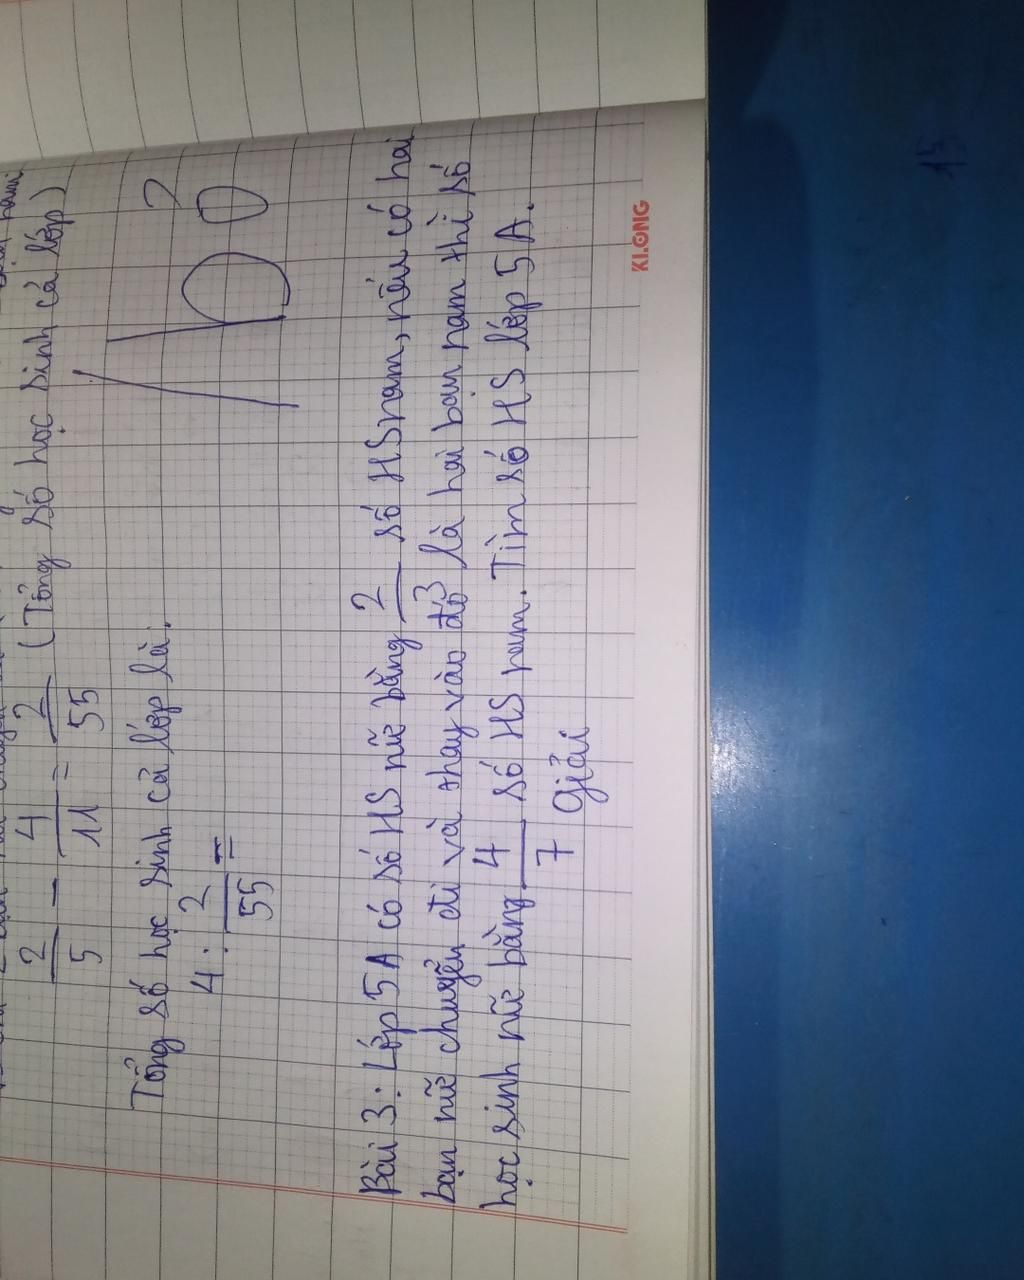 2/5 - 4/11 = 2/55 (Tổng số học sinh cả lớp)
Tổng số học sinh cả lớp là:
4 : 2/55 =
Bài 3: Lớp 5A có số HS nữ bằng 2/3 số HS nam, nếu có hai
bạn nữ chuyển đi và thay vào đó là hai bạn nam thì số
học sinh nữ bằng 4/7 số HS nam. Tìm số HS lớp 5A.
Giải
KLONG
15